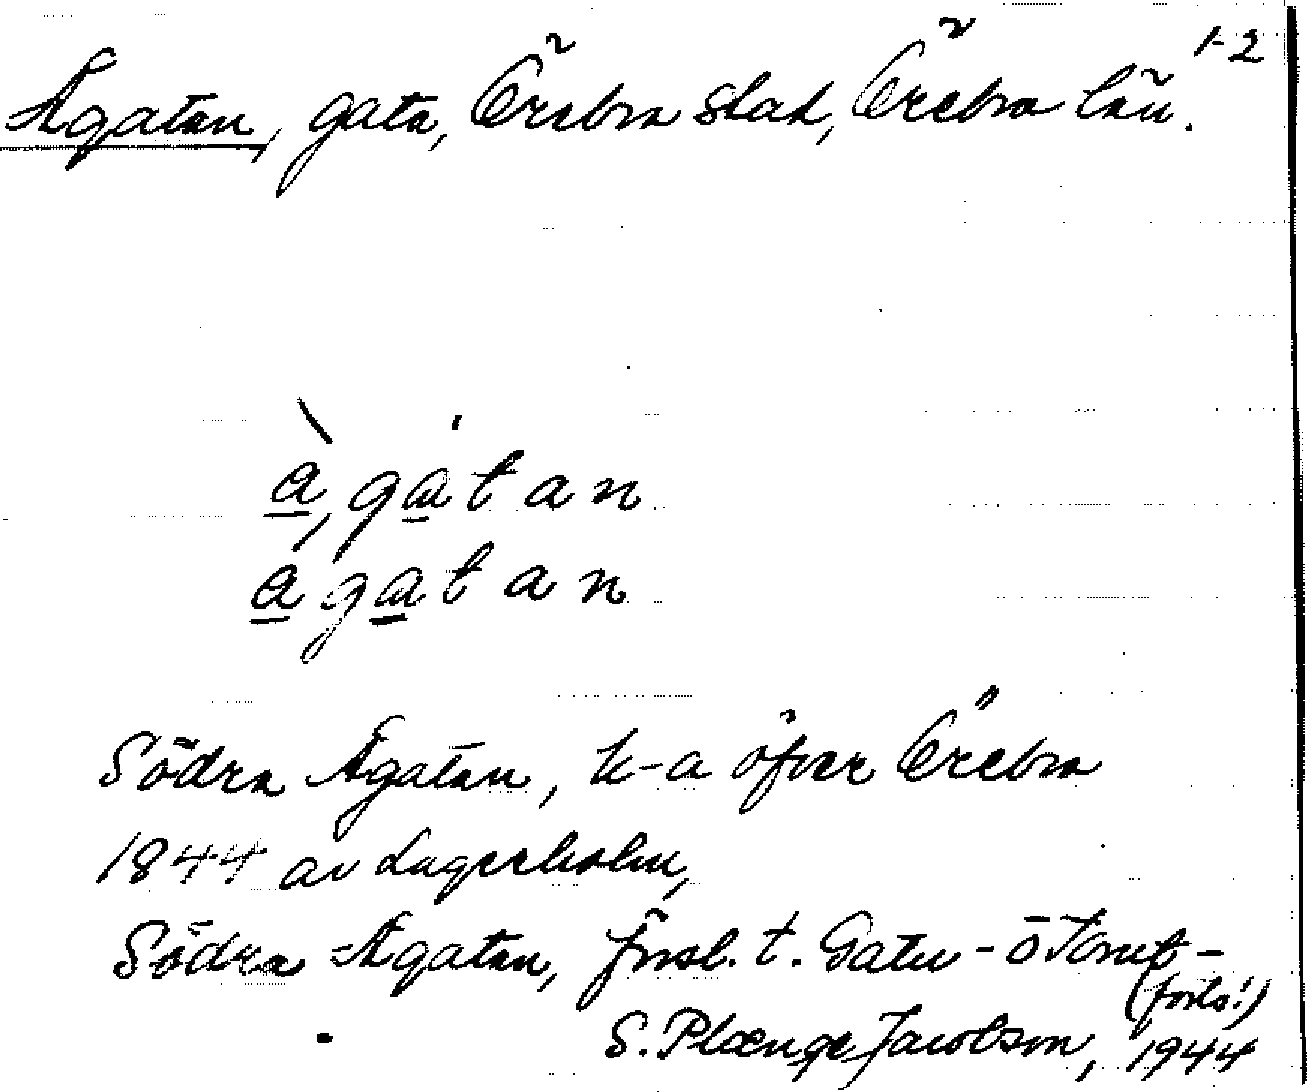 1-2
Ågatan, gata, Örebro stad, Örebro län.
a, gatan
a gatan
Södra Ågatan, k-a öfver Örebro
1844 av Lagerholm,
Södra Ågatan, försl. t. Gatu- o Tomt-
(forts!)
S. Plænge Jacobson, 1944